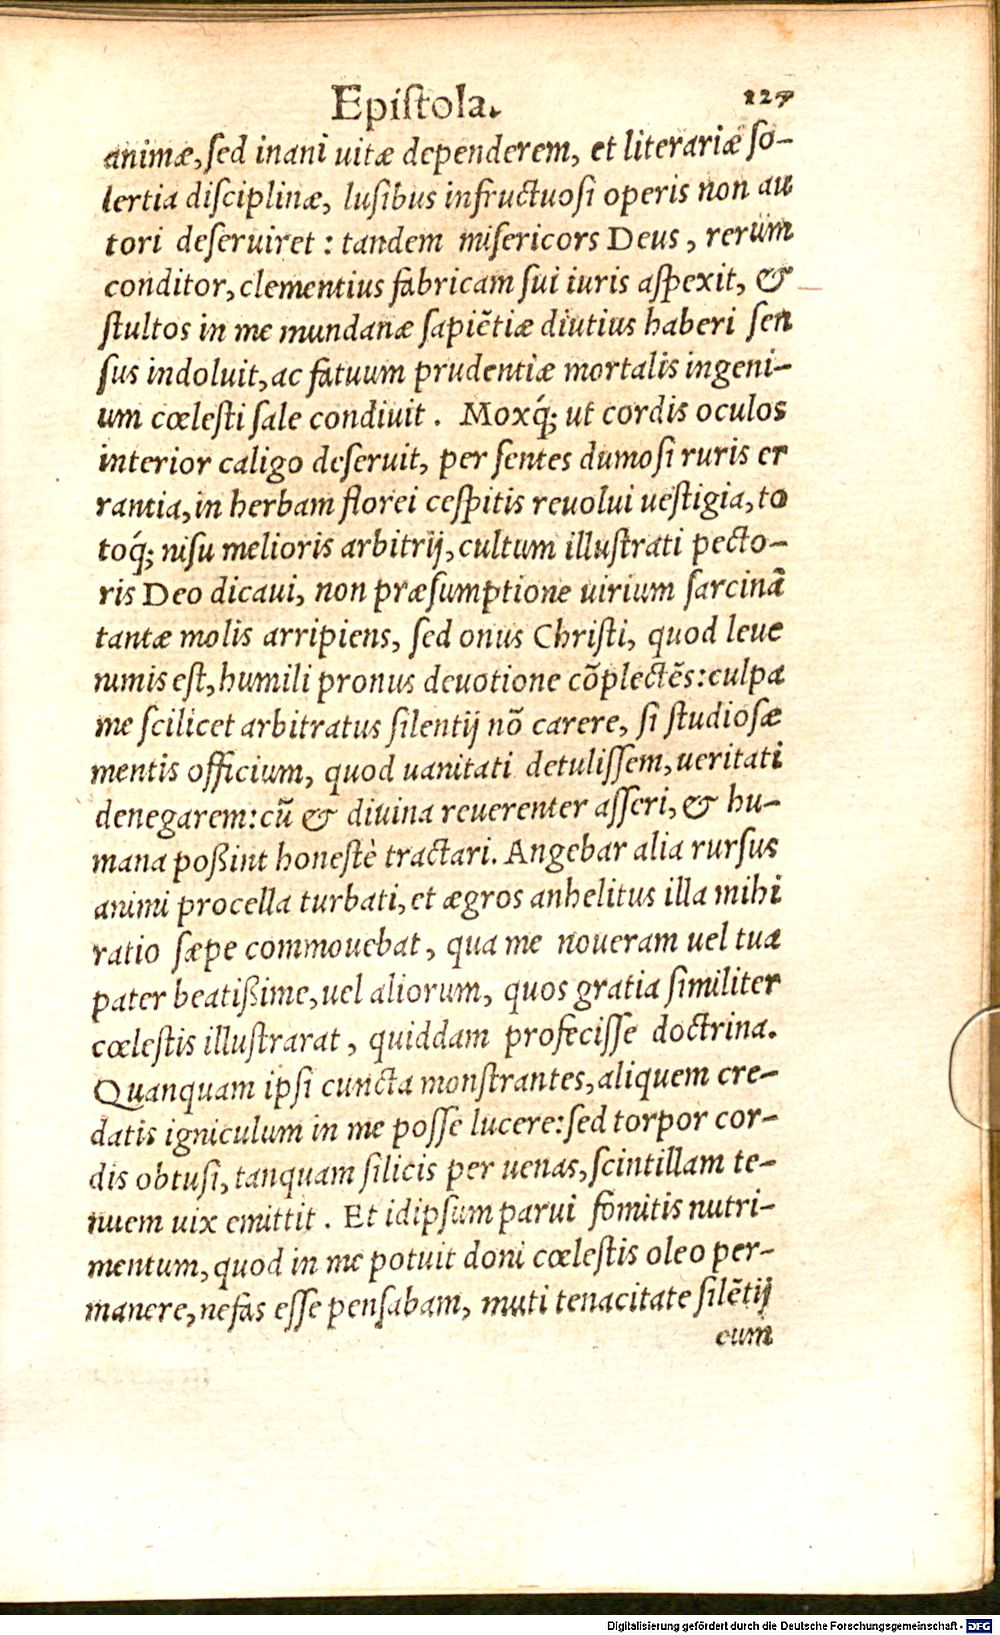 Epiſtola. 127
animæ, ſed inani uitæ dependerem, et literariæ ſo-
lertia diſciplinæ, luſibus infructuoſi operis non au
tori deſeruiret : tandem miſericors Deus, rerum
conditor, clementius fabricam ſui iuris aſpexit, &
ſtultos in me mundanæ ſapiẽtiæ diutius haberi ſen
ſus indoluit, ac fatuum prudentiæ mortalis ingeni-
um cœleſti ſale condiuit. Moxq́; ut cordis oculos
interior caligo deſeruit, per ſentes dumoſi ruris er
rantia, in herbam florei ceſpitis reuolui ueſtigia, to
toq́; niſu melioris arbitrij, cultum illuſtrati pecto-
ris Deo dicaui, non præſumptione uirium ſarcinã
tantæ molis arripiens, ſed onus Chriſti, quod leue
nimis eſt, humili pronus deuotione cõplectẽs: culpa
me ſcilicet arbitratus ſilentij nõ carere, ſi ſtudioſæ
mentis officium, quod uanitati detuliſſem, ueritati
denegarem: cũ & diuina reuerenter aſſeri, & hu-
mana poßint honeſtè tractari. Angebar alia rurſus
animi procella turbati, et ægros anhelitus illa mihi
ratio ſæpe commouebat, qua me noueram uel tua
pater beatißime, uel aliorum, quos gratia ſimiliter
cœleſtis illuſtrarat, quiddam profeciſſe doctrina.
Quanquam ipſi cuncta monſtrantes, aliquem cre-
datis igniculum in me poſſe lucere: ſed torpor cor-
dis obtuſi, tanquam ſilicis per uenas, ſcintillam te-
nuem uix emittit. Et idipſum parui fomitis nutri-
mentum, quod in me potuit doni cœleſtis oleo per-
manere, nefas eſſe penſabam, muti tenacitate ſilẽtij
eum
Digitalisierung gefördert durch die Deutsche Forschungsgemeinschaft - DFG